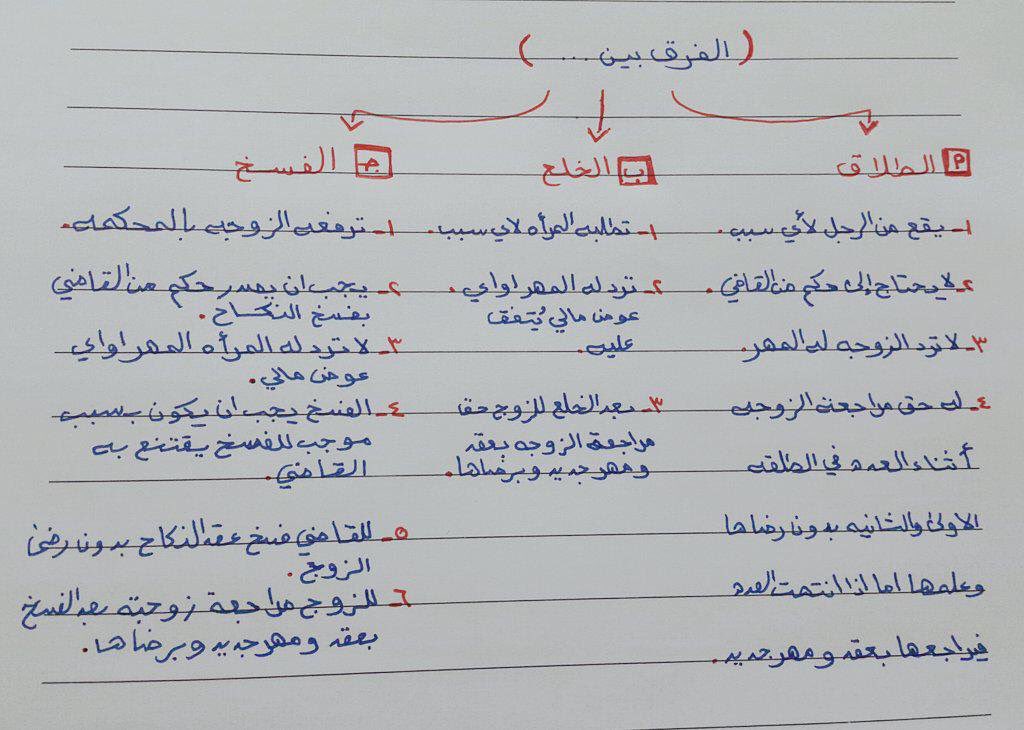 ( الفرق بين ... )
أ الطلاق
١- يقع من الرجل لأي سبب.
٢- لا يحتاج إلى حكم من القاضي.
٣- لا ترد الزوجه له المهر.
٤- له حق مراجعة الزوجه
أثناء العده في الطلقه
الاولى والثانيه بدون رضاها
وعلمها اما اذا انتهت العده
فيراجعها بعقد ومهر جديد.
ب الخلع
١- تطلبه المرأه لاي سبب.
٢- ترد له المهر او اي
عوض مالي يُتفق
عليه.
٣- بعد الخلع للزوج حق
مراجعة الزوجه بعقد
ومهر جديد وبرضاها.
جـ الفسخ
١- ترفعه الزوجه بالمحكمه.
٢- يجب ان يصدر حكم من القاضي
بفسخ النكاح.
٣- لا ترد له المرأه المهر او اي
عوض مالي.
٤- الفسخ يجب ان يكون بسبب
موجب للفسخ يقتنع به
القاضي.
٥- للقاضي فسخ عقد النكاح بدون رضى
الزوج.
٦- للزوج مراجعة زوجته بعد الفسخ
بعقد ومهر جديد وبرضاها.